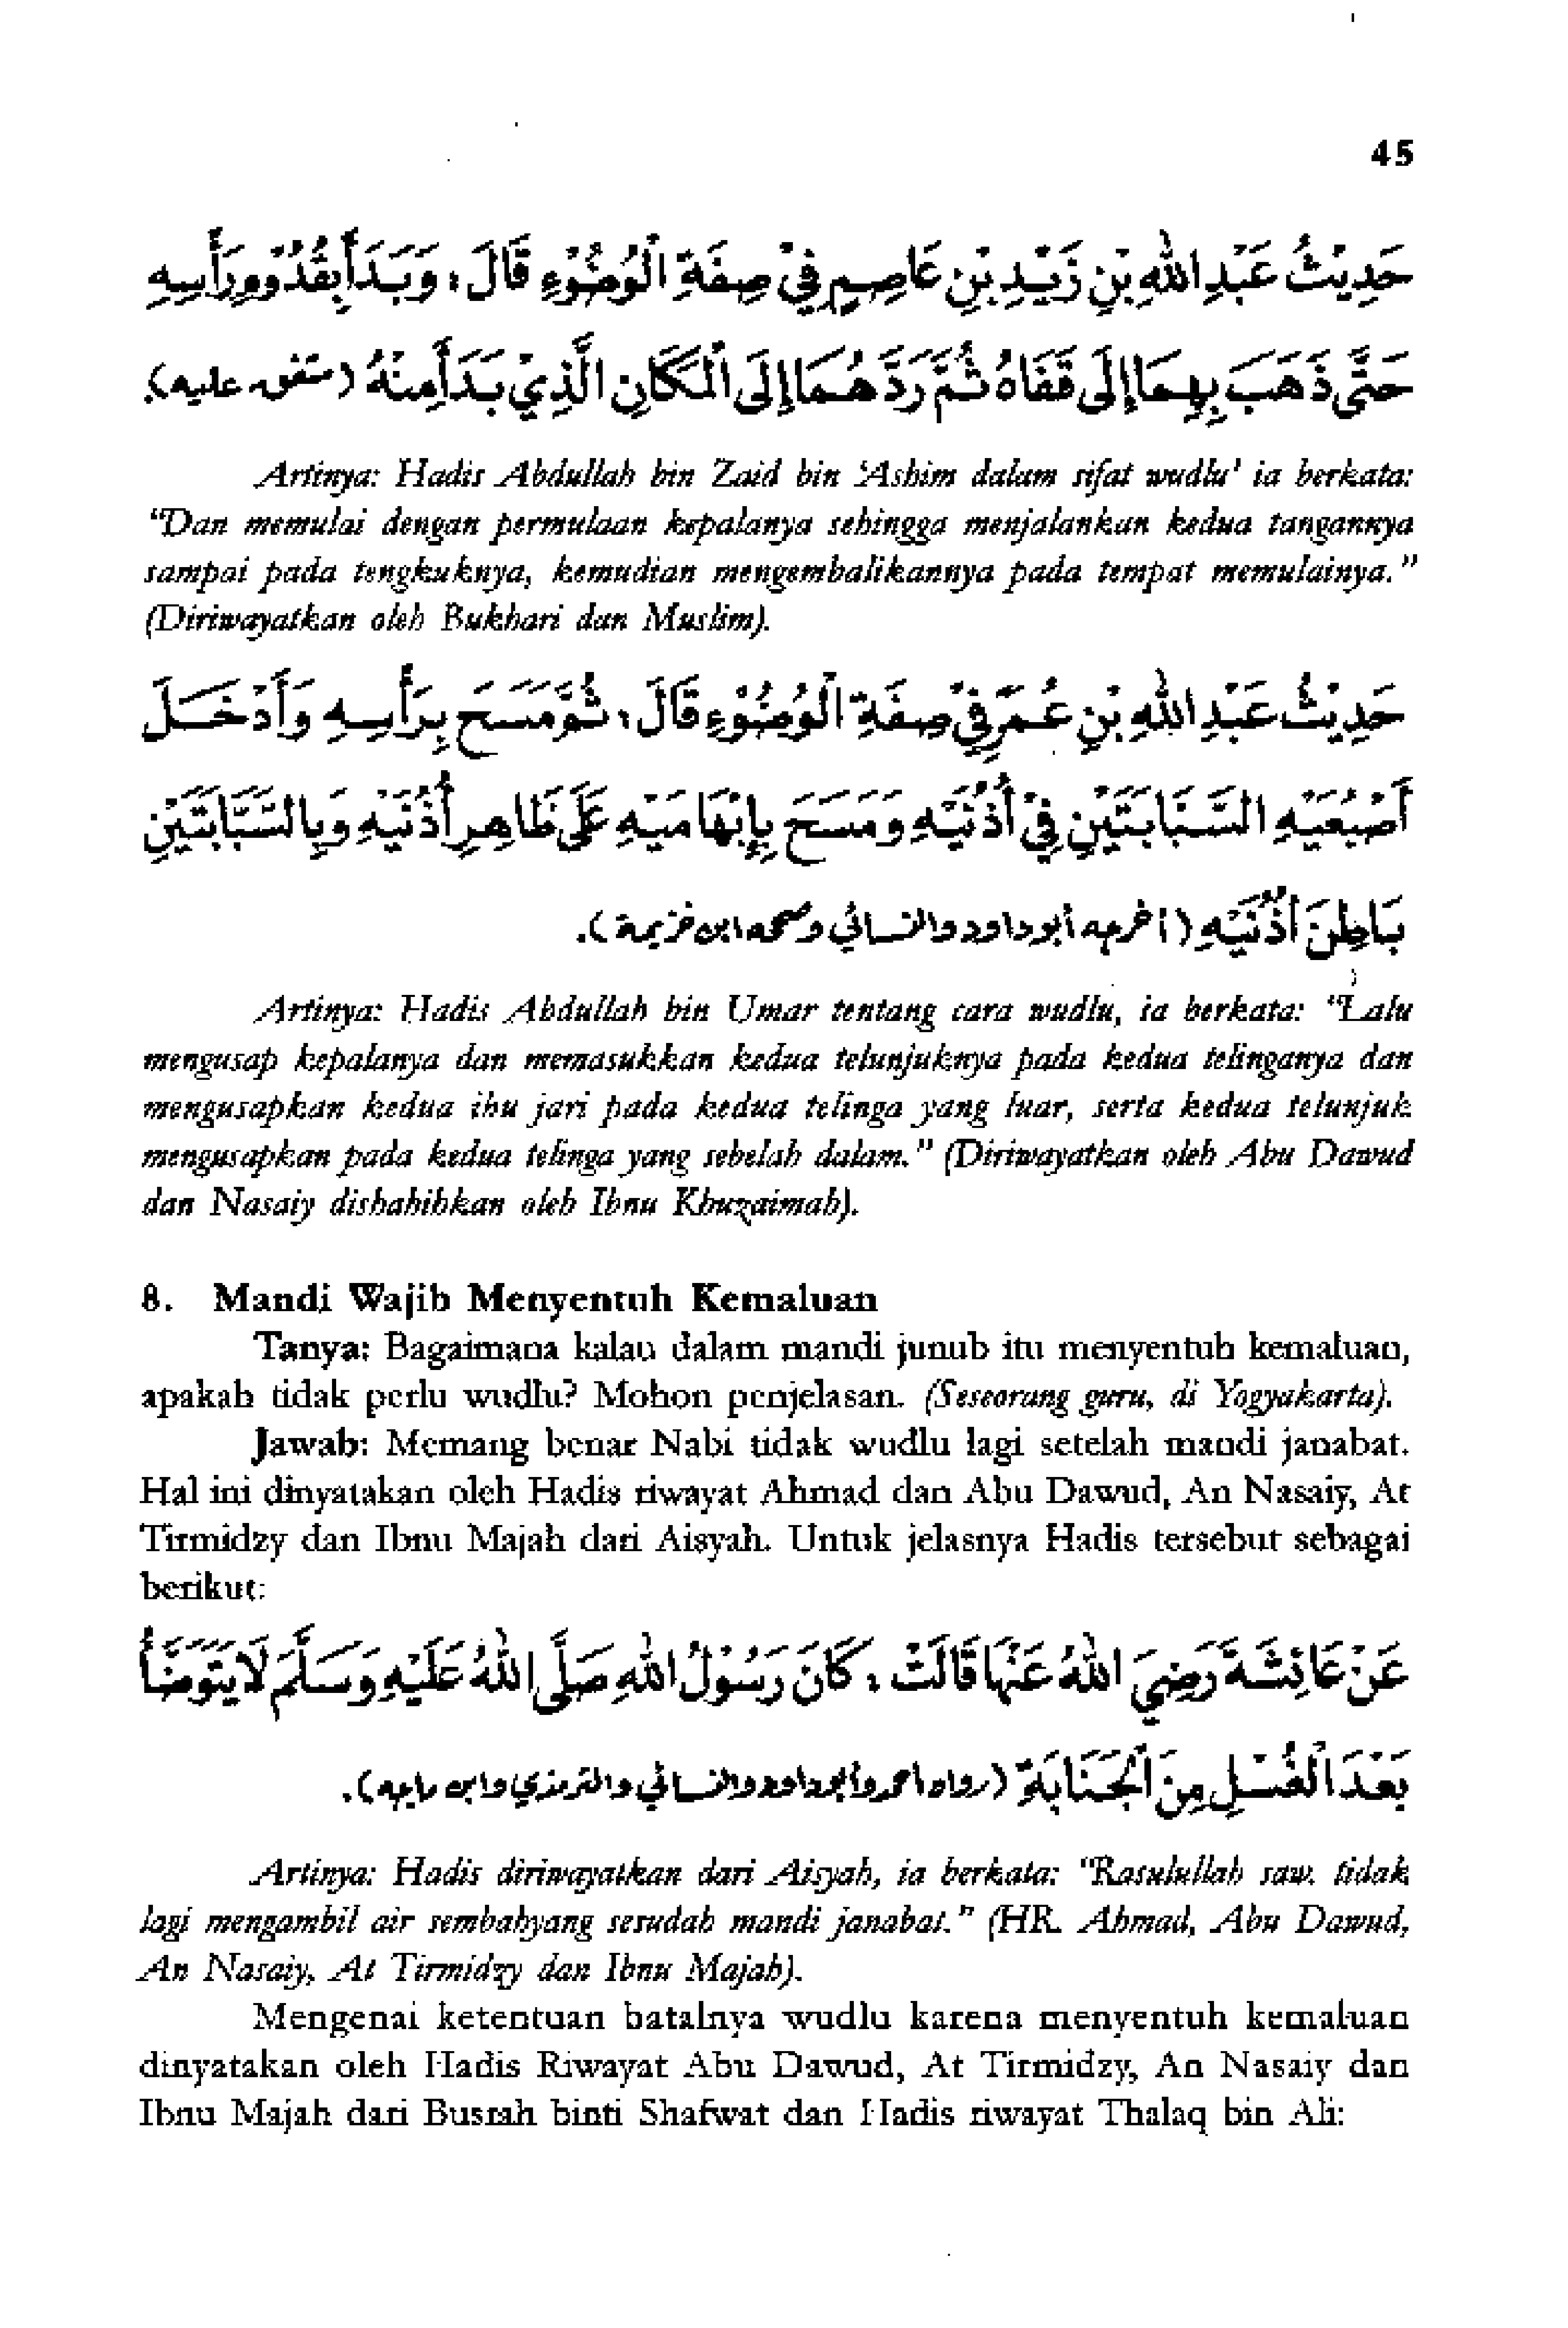 45
حَدِيْثُ عَبْدِ اللهِ بْنِ زَيْدِ بْنِ عَاصِمٍ فِيْ صِفَةِ الْوُضُوْءِ قَالَ: وَبَدَأَ بِمُقَدَّمِ رَأْسِهِ
حَتَّى ذَهَبَ بِهِمَا إِلَى قَفَاهُ ثُمَّ رَدَّهُمَا إِلَى الْمَكَانِ الَّذِيْ بَدَأَ مِنْهُ (متفق عليه).
Artinya: Hadis Abdullah bin Zaid bin 'Ashim dalam sifat wudlu' ia berkata:
"Dan memulai dengan permulaan kepalanya sehingga menjalankan kedua tangannya
sampai pada tengkuknya, kemudian mengembalikannya pada tempat memulainya."
(Diriwayatkan oleh Bukhari dan Muslim).
حَدِيْثُ عَبْدِ اللهِ بْنِ عُمَرَ فِيْ صِفَةِ الْوُضُوْءِ قَالَ: ثُمَّ مَسَحَ بِرَأْسِهِ وَأَدْخَلَ
أَصْبُعَيْهِ السَّبَّابَتَيْنِ فِيْ أُذُنَيْهِ وَمَسَحَ بِإِبْهَامَيْهِ عَلَى ظَاهِرِ أُذُنَيْهِ وَبِالسَّبَّابَتَيْنِ
بَاطِنَ أُذُنَيْهِ (أخرجه أبو داود والنسائي وصححه ابن خزيمة).
Artinya: Hadis Abdullah bin Umar tentang cara wudlu, ia berkata: "Lalu
mengusap kepalanya dan memasukkan kedua telunjuknya pada kedua telinganya dan
mengusapkan kedua ibu jari pada kedua telinga yang luar, serta kedua telunjuk
mengusapkan pada kedua telinga yang sebelah dalam." (Diriwayatkan oleh Abu Dawud
dan Nasaiy dishahihkan oleh Ibnu Khuzaimah).
8. Mandi Wajib Menyentuh Kemaluan
Tanya: Bagaimana kalau dalam mandi junub itu menyentuh kemaluan,
apakah tidak perlu wudlu? Mohon penjelasan. (Seseorang guru, di Yogyakarta).
Jawab: Memang benar Nabi tidak wudlu lagi setelah mandi janabat.
Hal ini dinyatakan oleh Hadis riwayat Ahmad dan Abu Dawud, An Nasaiy, At
Tirmidzy dan Ibnu Majah dari Aisyah. Untuk jelasnya Hadis tersebut sebagai
berikut:
عَنْ عَائِشَةَ رَضِيَ اللهُ عَنْهَا قَالَتْ: كَانَ رَسُوْلُ اللهِ صَلَّى اللهُ عَلَيْهِ وَسَلَّمَ لَا يَتَوَضَّأُ
بَعْدَ الْغُسْلِ مِنَ الْجَنَابَةِ (رواه احمد وأبو داود والنسائي والترمذي وابن ماجه).
Artinya: Hadis diriwayatkan dari Aisyah, ia berkata: "Rasulullah saw. tidak
lagi mengambil air sembahyang sesudah mandi janabat." (HR. Ahmad, Abu Dawud,
An Nasaiy, At Tirmidzy dan Ibnu Majah).
Mengenai ketentuan batalnya wudlu karena menyentuh kemaluan
dinyatakan oleh Hadis Riwayat Abu Dawud, At Tirmidzy, An Nasaiy dan
Ibnu Majah dari Busrah binti Shafwat dan Hadis riwayat Thalaq bin Ali: